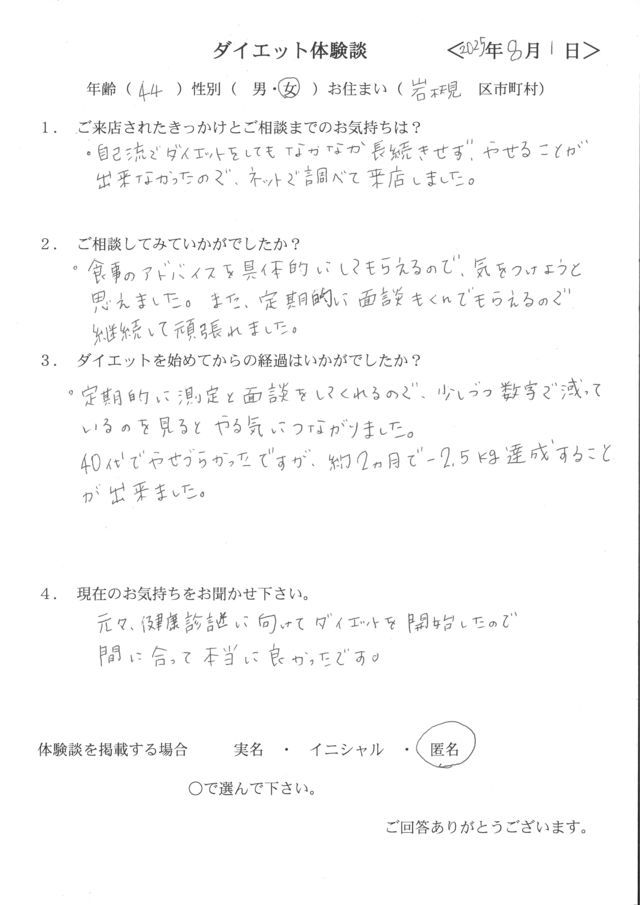 ダイエット体験談 ＜2025年8月1日＞
年齢（ 44 ）性別（ 男・女 ）お住まい（ 岩槻 区市町村）
１． ご来店されたきっかけとご相談までのお気持ちは？
・自己流でダイエットをしてもなかなか長続きせず、やせることが
出来なかったので、ネットで調べて来店しました。
２． ご相談してみていかがでしたか？
・食事のアドバイスを具体的にしてもらえるので、気をつけようと
思えました。また、定期的に面談もくんでもらえるので
継続して頑張れました。
３． ダイエットを始めてからの経過はいかがでしたか？
・定期的に測定と面談をしてくれるので、少しづつ数字で減って
いるのを見るとやる気につながりました。
40代でやせづらかったですが、約2ヵ月で-2.5kg達成すること
が出来ました。
４． 現在のお気持ちをお聞かせ下さい。
元々、健康診断に向けてダイエットを開始したので
間に合って本当に良かったです。
体験談を掲載する場合 実名 ・ イニシャル ・ 匿名
〇で選んで下さい。
ご回答ありがとうございます。